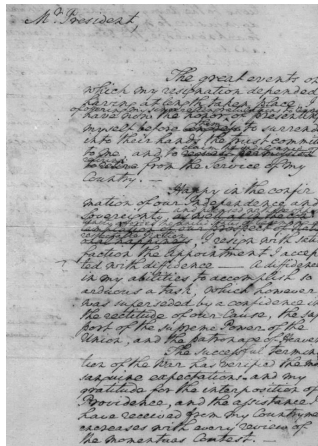 Mr. President,
The great events on
which my resignation depended
having at length taken place, I
have now the honor of presenting
myself before to surrender
into their hands the trust committed
to me, and to
from the Service of my
Country. —
Happy in the confir
mation of our Independence and
Sovereignty,
I resign with satis
faction the appointment I accep
ted with diffidence — A diffidence
in my abilities to accomplish so
arduous a task, which however
was superseded by a confidence in
the rectitude of our Cause, the sup
port of the supreme Power of the
Union, and the patronage of Heaven
The successful termina
tion of the War has verified the mo
sanguine expectations, and my
gratitude for the interposition of
Providence, and the assistance I
have received from my Countrymen
encreases with every review of
the momentous Contest.